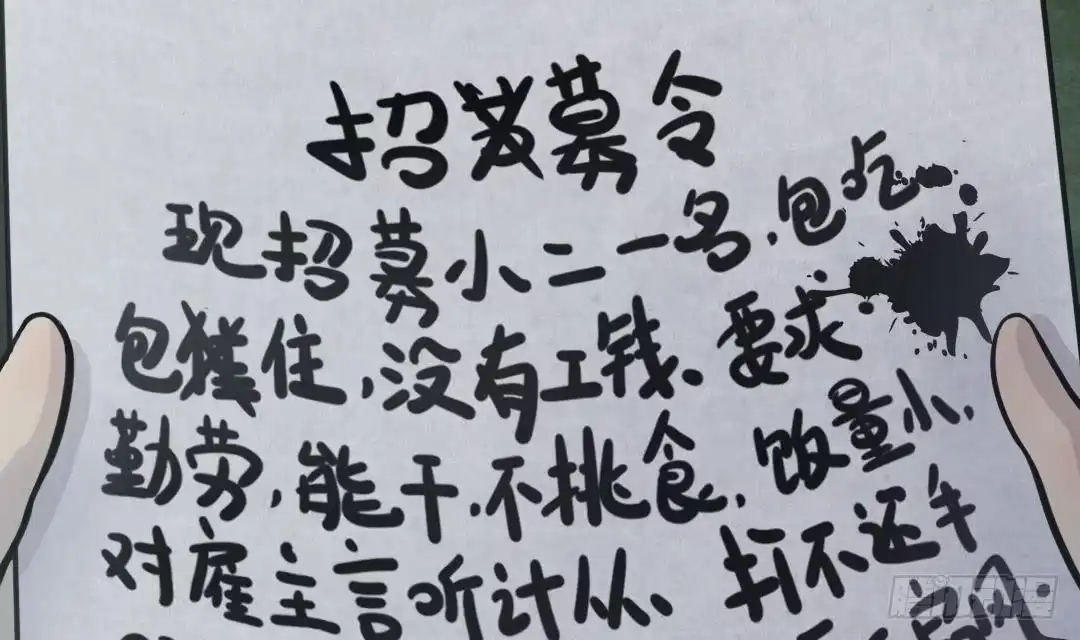 招募令
现招募小二一名,包吃
包住,没有工钱、要求
勤劳,能干、不挑食,饭量小,
对雇主言听计从、打不还手
腾讯动漫